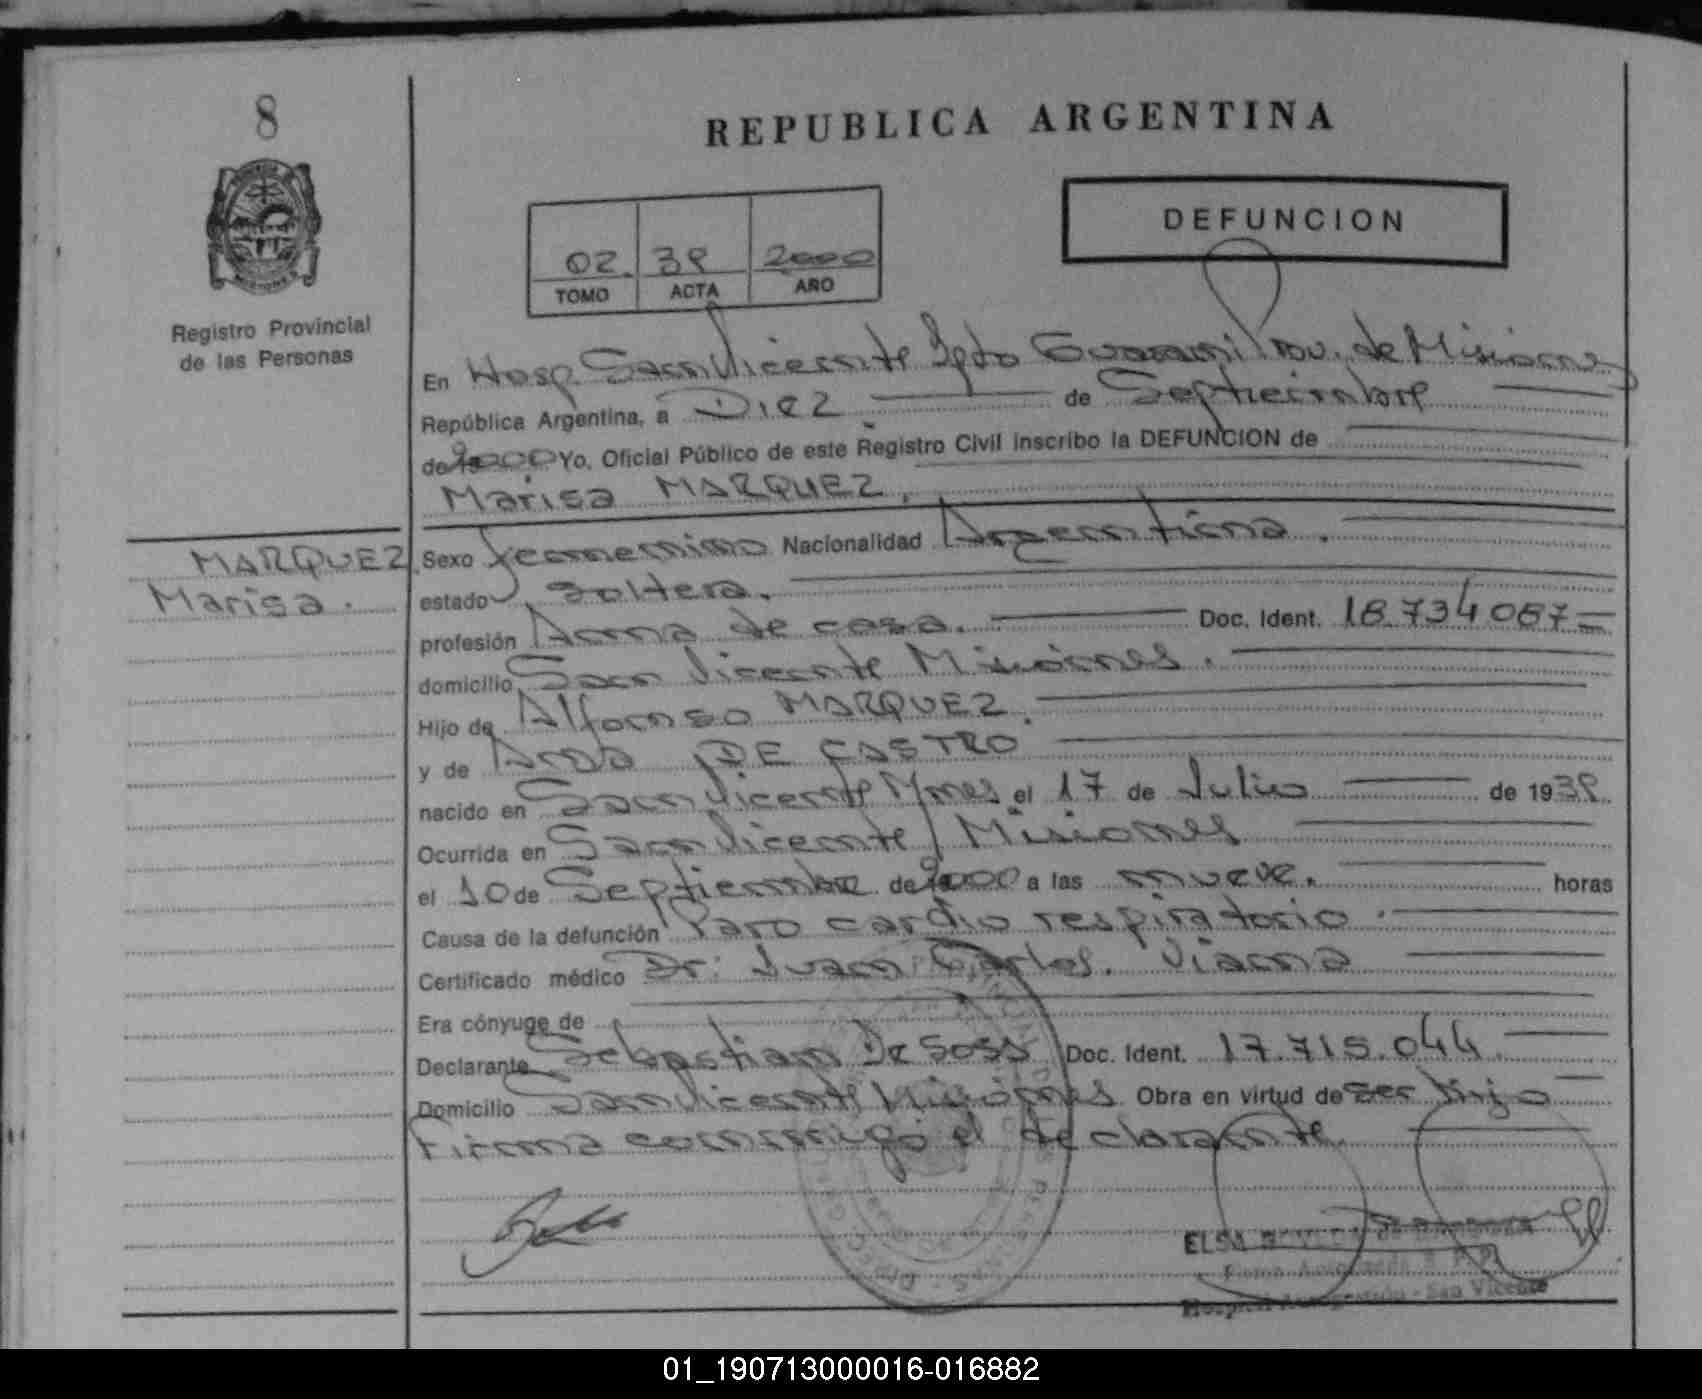 8
REPUBLICA ARGENTINA
DEFUNCION
02. 39 2000
TOMO ACTA AÑO
Registro Provincial
de las Personas
En Hosp. San Vicente Dpto Guarani Prov. de Misiones
República Argentina, a Diez de Septiembre
de 2000 Yo, Oficial Público de este Registro Civil inscribo la DEFUNCION de
Marisa MARQUEZ.
MARQUEZ
Marisa.
Sexo femenino Nacionalidad Argentina.
estado soltera.
profesión Ama de casa. Doc. Ident. 18.734087=
domicilio San Vicente Misiones.
Hijo de Alfonso MARQUEZ.
y de Ana DE CASTRO
nacido en San Vicente Mnes el 17 de Julio de 1939.
Ocurrida en San Vicente / Misiones
el 10 de Septiembre de 2000 a las nueve. horas
Causa de la defunción Paro cardio respiratorio.
Certificado médico Dr: Juan Carlos. Viana
Era cónyuge de
Declarante Sebastian De Doc. Ident. 17.715.044.
Domicilio San Vicente Misiones Obra en virtud de ser hijo
Firma conmigo el declarante.
ELSA
Hospital - San Vicente
01_190713000016-016882